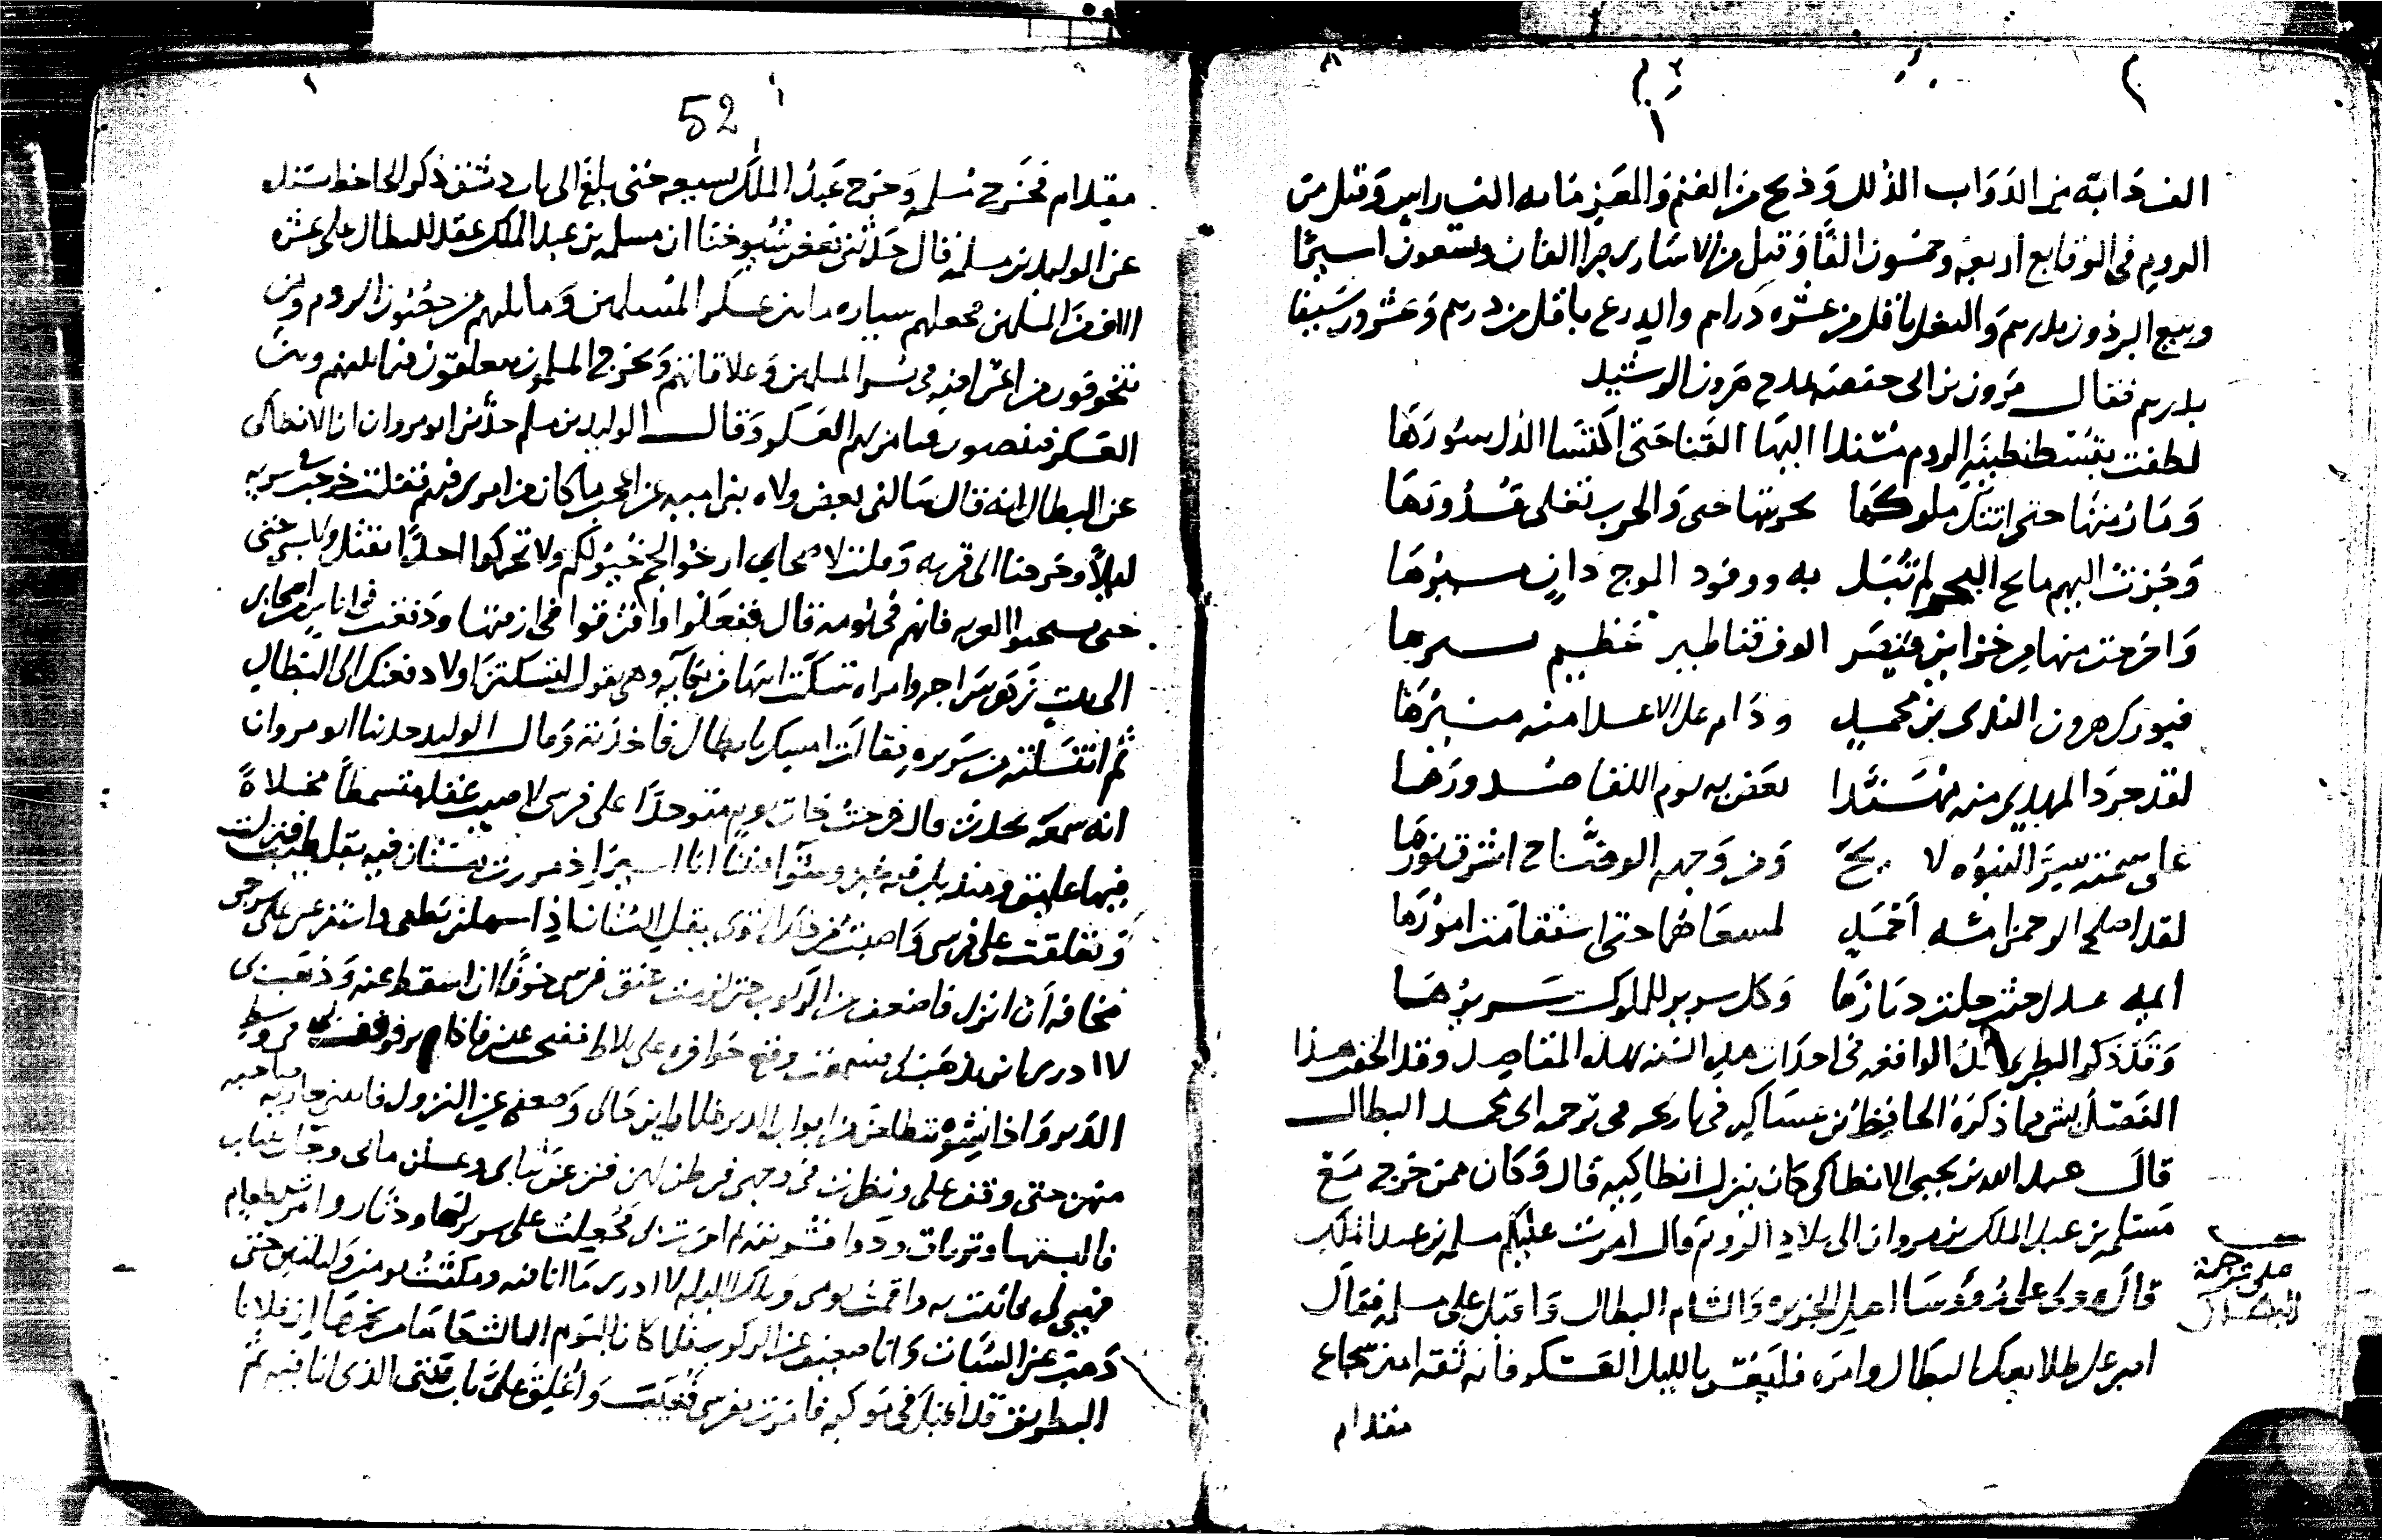 الف دابة من الدواب الذلل وذبح من الغنم والمعز مايه الف راس وقتل من
الروم في الوقايع اربعة وخمسون الفا وقتل من الاسارى صبرا الفان وتسعون اسيرا
وبيع البرذون بدرهم والبغل باقل من عشرة دراهم والدرع باقل من درهم وعشرون سيفا
بدرهم فقال مروان بن ابي حفصة يمدح هرون الرشيد
اطفت بقسطنطينية الروم مسندا اليها القنا حتى اكتسا الذل سورها
وما رمتها حتى اتتك ملوكها بجزيتها حتى والحرب تغلى قدورها
وجزت اليهم مايح البحر لم تبل به ووفود الموج دان
واخرجت منها من خزاين قيصر الوف قناطير عظيم
فبورك هرون الندى بن محمد ودام على الاعدا منه
لقد جرد المهدي منه مهندا يعض به يوم اللقا صدورها
على سمته سير النبوه لا ومن وجهه الوضاح اشرق نورها
لقد اصلح الرحمن امة احمد لمسعاهما حتى استقامت امورها
حيث حلت ديارها وكل سرير للملوك سريرها
وقد ذكر الطبري الواقعه في احداث هذه السنه بهذه المقاصد وقد الحقت هذا
الفصل بشي مما ذكره الحافظ بن عساكر في تاريخه في ترجمه ابي محمد البطال
قال عبد الله بن يحيى الانطاكي كان ينزل انطاكيه قال وكان ممن خرج مع
مسلمه بن عبد الملك بن مروان الى بلاد الروم قال امرت عليكم مسلمه بن عبد الملك
قال وولى على روؤسا اهل الجزيره والشام البطال واقبل على مسلمه فقال
امير على طلايعك البطال وامره فليعس بالليل العسكر فانه ثقه امين شجاع
مقدام
على ترجمة
البطال
52
مقدام فخرج مسلمه وخرج عبد الملك يشيعه حتى بلغ الى باب دمشق ذكر الحافظ بسنده
عن الوليد بن مسلمة قال حدثني بعض شيوخنا ان مسلمه بن عبد الملك عقد للبطال على عشره
الاف من المسلمين فجعلهم سياره ما بين عسكر المسلمين وما يليهم من حصون الروم ومن
يتخوفون من اعتراضه في نشر المسلمين وعلافاتهم ويخرج المسلمون يتعلفون فيما بينهم وبين
العسكر فيصيبون فيامن بهم العسكر وقال الوليد بن مسلم حدثني ابو مروان ان الانطاكي
عن البطال انه قال سالني بعض ولاه بني اميه عن اعجب ما كان من امرى فيهم فقلت خرجت في سريه
ليلا وخرجنا الى قريه وقلت لاصحابي ارخوا لجم خيولكم ولا تحركوا احدا بقتل ولا سبي حتى
القريه فانهم في نومه قال ففعلوا وافترقوا في ازقتها ودفعت في اناس من اصحابي
الى بيت يزهر سراجه وامراه تسكت ابنها من بكايه وهي تقول لتسكتن او لادفعنك الى البطال
ثم انتشلته من سريره فقالت امسك يا بطال فاخذته وقال الوليد حدثنا ابو مروان
انه سمعه يحدث قال خرجت ذات يوم متوحدا على فرسي لاصيب غفله متسمطا مخلاة
فيها عليق ومنديل فيه خبز وشوا فبينا انا اسير اذ مررت ببستان فيه بقل طيب فنزلت
وتعلقت على فرسى واصبت من ذلك الشوى ببقل البستان اذ اسهلني بطني
مخافه ان انزل فاضعف عن الركوب حتى لزمت عنق فرسي خوفا ان اسقط عنه وذهب بي
لا ادري اين يذهب بي فسمعت وقع حوافره على بلاط ففتحت عيني فاذا دير فوقف بي في وسط
الدير واذا نسوة يتطلعن من ابواب الدير فلما راين حالي وضعفي عن النزول
منهن حتى وقفت على ونظرت في وجهي فرطن لهن فنزعن ثيابي وغسلن مابي وجات بثياب
فالبستنيها وترياق ودوا فشربته ثم امرت بي فجعلت على سرير لها ودثار وامرت بطعام
فهيي لي فاتيت به واقمت يومي وتلك الليله لا ادرى ما انا فيه ومكثت يومين وليلتين حتى
ذهب عني السبات وانا ضعيف عن الركوب فلما كان اليوم الثالث جاها من يخبرها ان فلانا
البطريق قد اقبل في موكبه فامرت بفرسي فغيب واغلق على باب بيتي الذي انا فيه ثم